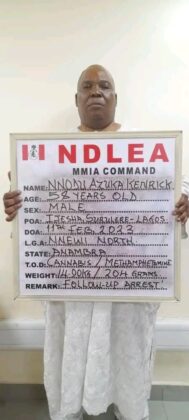 NDLEA
MMIA COMMAND
NAME: NNODU AZUKA KENRICK
AGE: 58 YEARS OLD
SEX: MALE
POA: IJESHA, SURULERE - LAGOS
DOA: 11TH FEB, 2023
L.G.A: NNEWI NORTH
STATE: ANAMBRA
T.O.D: CANNABIS / METHAMPHETAMINE
WEIGHT: 14.00KG / 204 GRAMS
REMARK: FOLLOW-UP ARREST